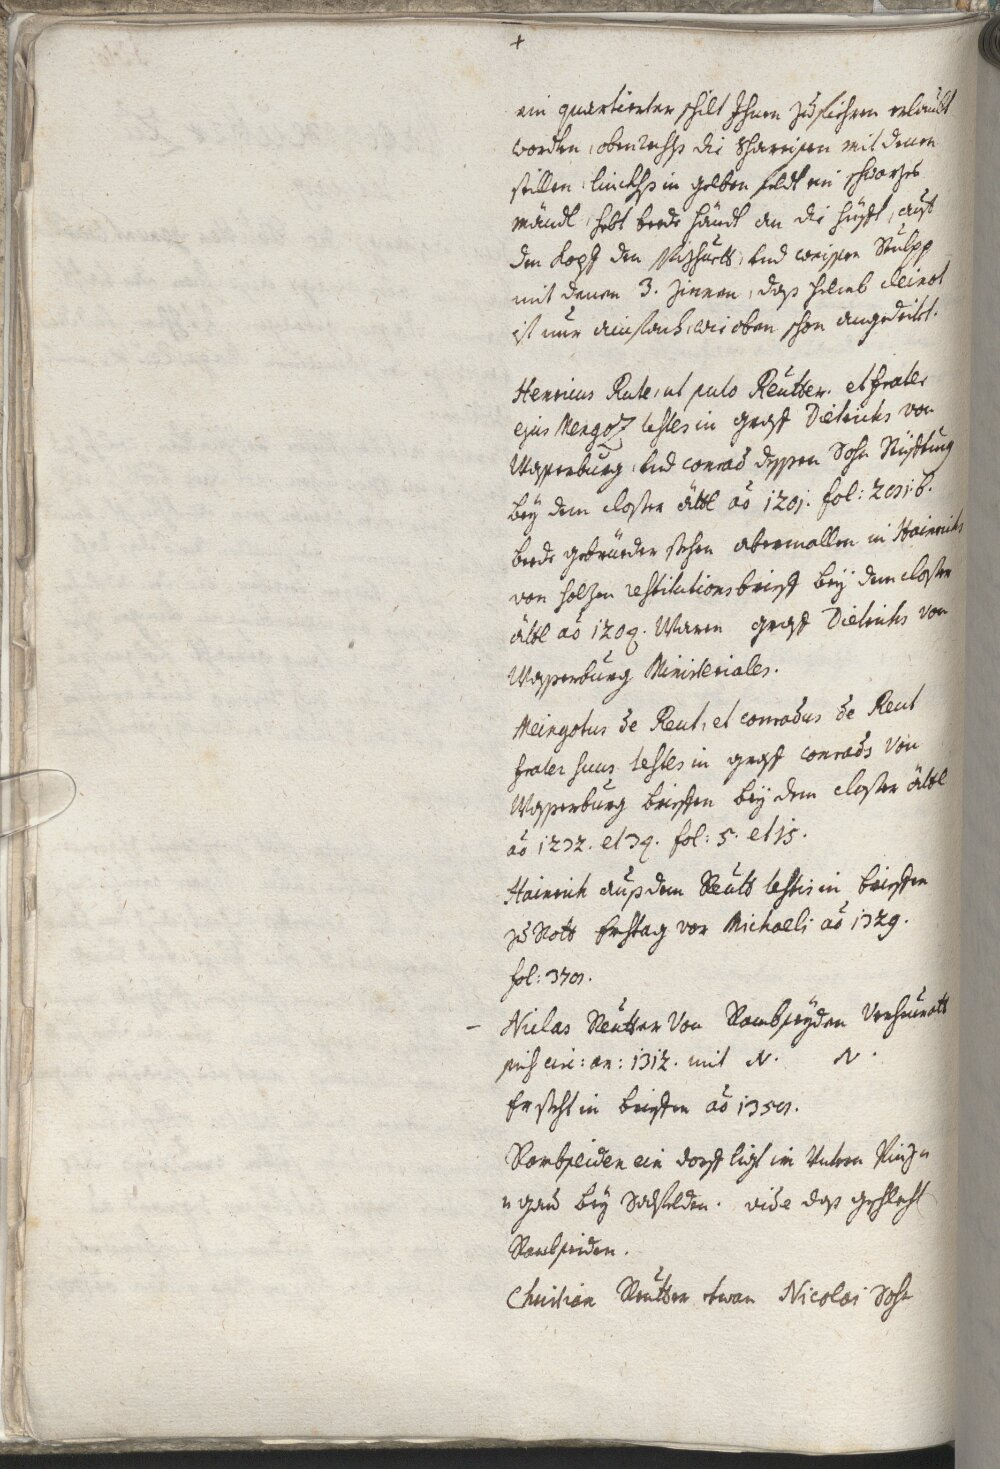 +
ein quartierter schilt Ihnen zu fiehren erlaubt
worden, obenrechts die Schareisen mit denen
stillen, linckhs in gelben feldt ein schwarzes
mändl, hebt beede händt an die hüfft, auf
den kopf den Spizhuett, und weissen Stulpp
mit denen 3. Zinnen, das Helmb cleinot
ist nur ainfach, wie oben schon angedeitet.
Henricus Rute, ut puto Reütter. et frater
ejus Mengoz testes in graff Dietrichs von
Wasserburg, und conrad dessen Sohn Stüfftung
bey dem closter ättl ao 1201. fol: 201. b.
beede gebrüeder stehen abermallen in Hainrichs
von holzen restitutionsbrieff bey dem closter
ättl ao 1209. Waren graff Dietrichs von
Wasserburg Ministeriales.
Meingotus de Reut, et conradus de Reut
frater suus testes in graff conrads von
Wasserburg brieffen bey dem closter ättl
ao 1232. et 39. fol: 5. et 15.
Hainrich auß dem Reütt testis in brieffen
zu Rott Erchtag vor Michaeli ao 1329.
fol: 370.
– Niclas Reütter von Rambseyden verheuratt
sich circ: an: 1312. mit N. N.
Er steht in brieffen ao 1350.
Rambseiden ein dorff ligt im Untern Pinz=
=gau bey Salfelden. vide das geschlecht
Rambseiden.
Christian Reütter etwan Nicolai Sohn